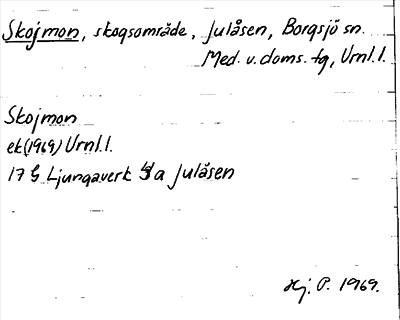 Skojmon, skogsområde, Julåsen, Borgsjö sn.
Med. v. doms. tg, Urnl. l.
Skojmon
ek (1969) Urnl. l.
17 G Ljungaverk a Julåsen
Hj. P. 1969.